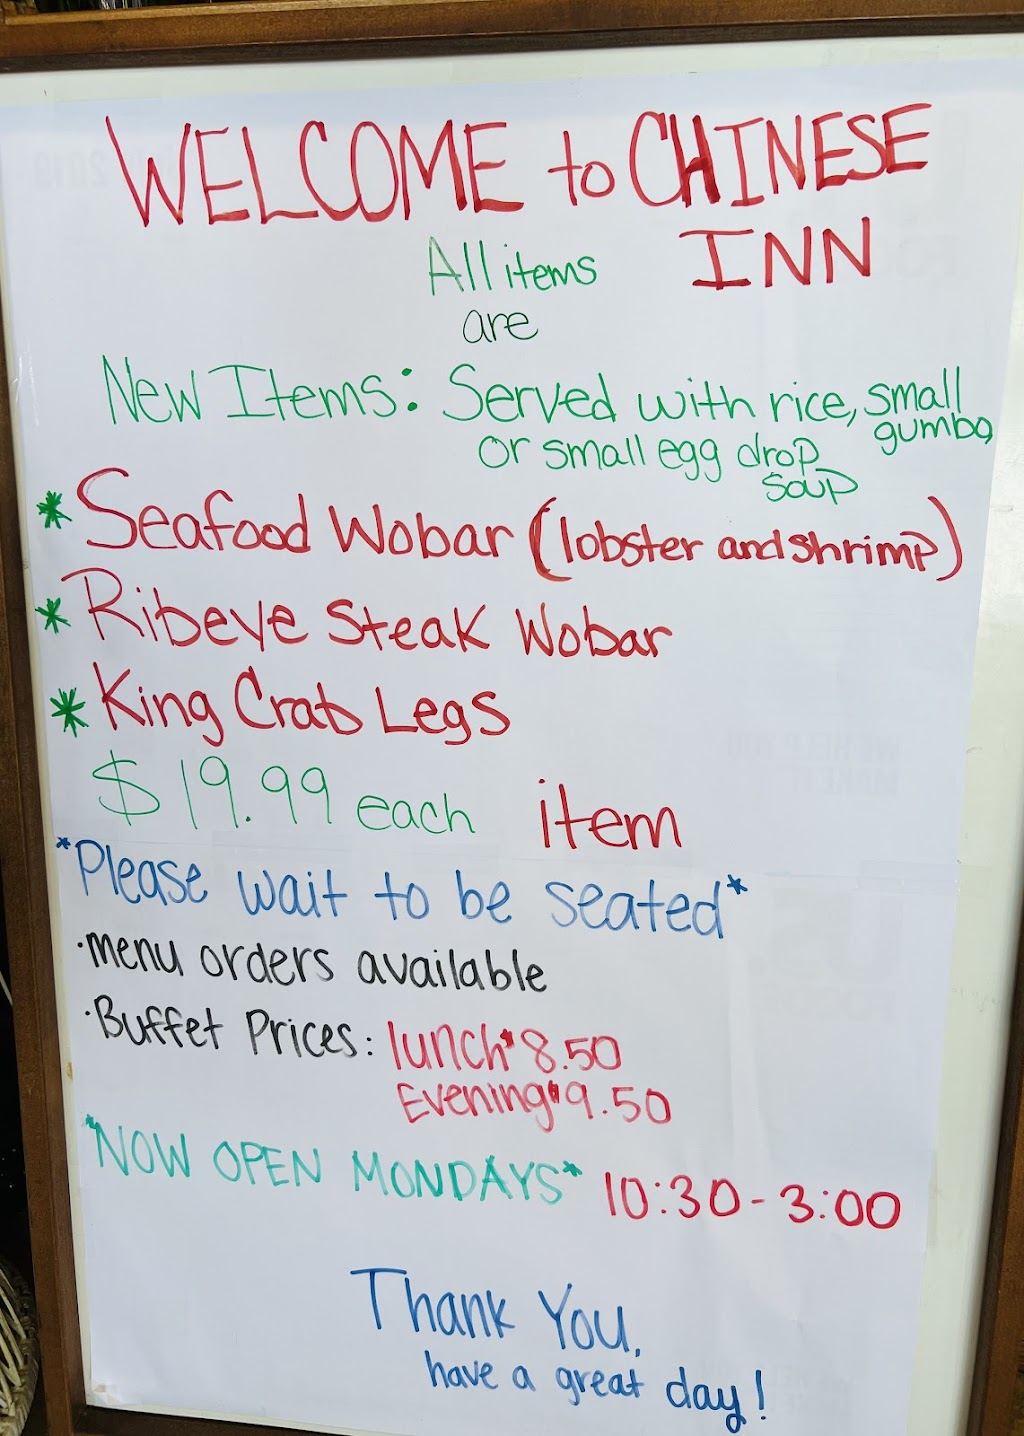 WELCOME to CHINESE
INN
All items
are
New Items: Served with rice, small
gumbo,
or small egg drop
soup
* Seafood Wobar (lobster and shrimp)
* Ribeye Steak Wobar
* King Crab Legs
$19.99 each item
*Please wait to be seated*
·menu orders available
·Buffet Prices: lunch*8.50
Evening*9.50
*NOW OPEN MONDAYS* 10:30-3:00
Thank You,
have a great day!